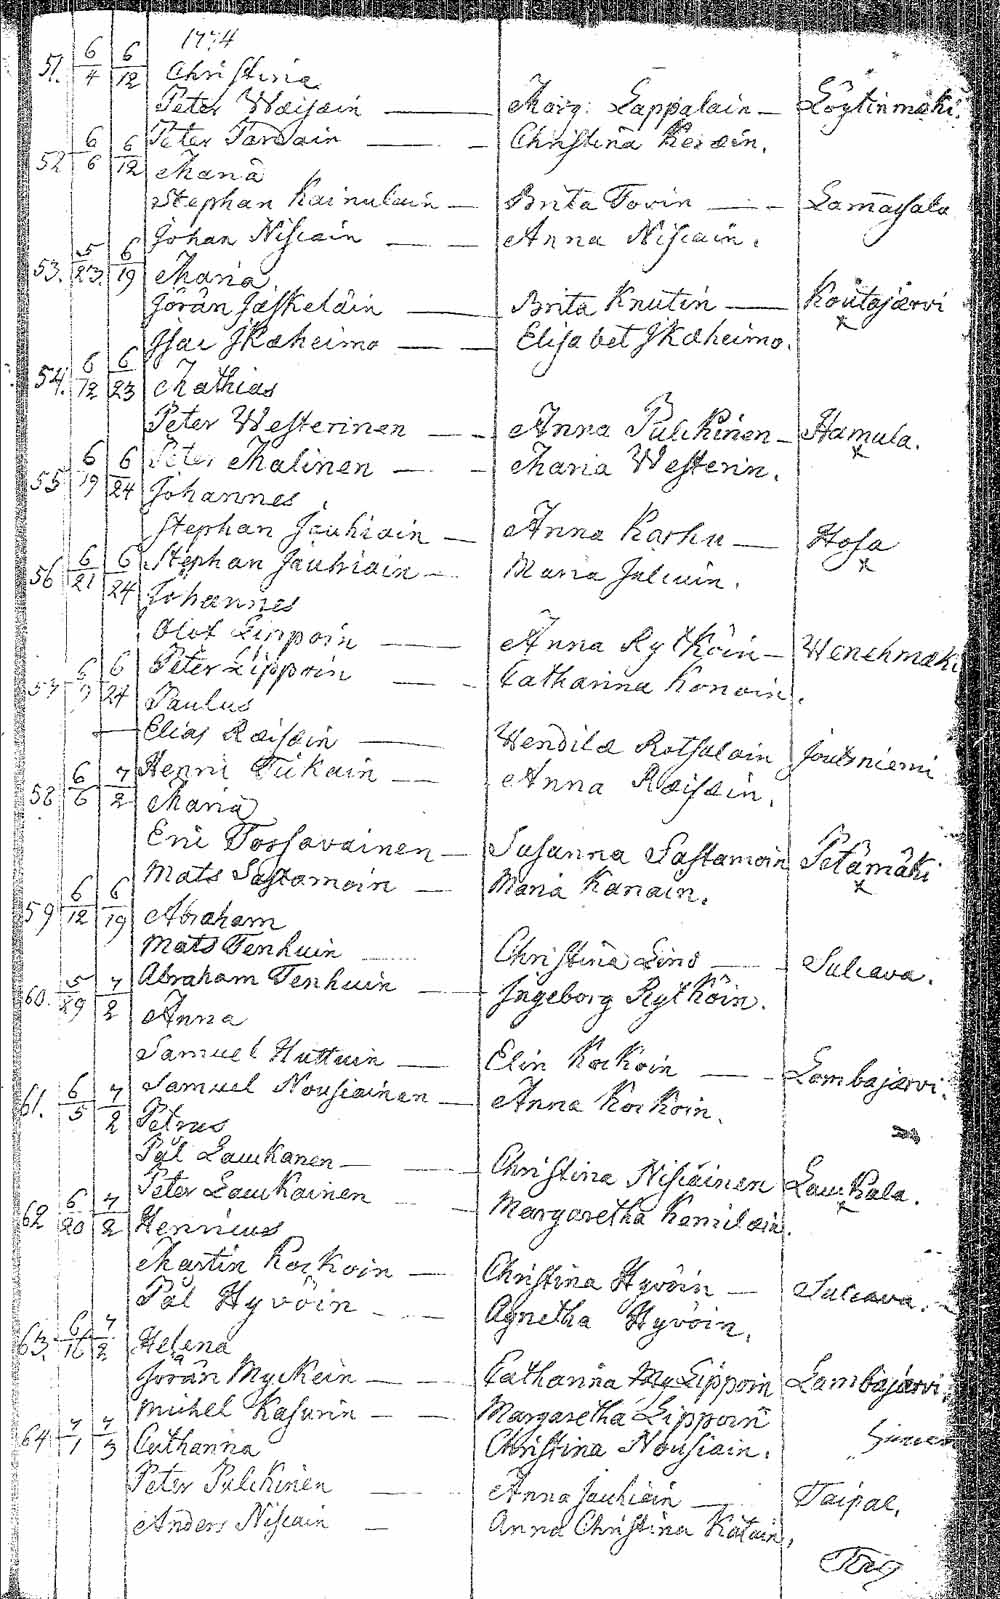 1774
51. 6/4 6/12 Christina
Peter Wäisäin — Marg: Lappalain — Löytinmäki.
Peter Tardain — Christina Keräin.
52 6/6 6/12 Maria
Stephan Kainulain — Brita Tovin — Lamasala
Johan Nisiain — Anna Nisiain.
53. 5/23. 6/19 Maria
Jörän Jäskeläin — Brita Knutin — Koutajærvi
Isac Ikæheimo — Elisabet Ikæheimo.
54. 6/12 6/23 Mathias
Peter Westerinen — Anna Pulckinen — Hamula.
Peter Malinen — Maria Westerin.
55 6/19 6/24 Johannes
Stephan Jauhiain — Anna Karhu — Hosa
Stephan Jauhiain — Maria Julcuin.
56 6/21 6/24 Johannes
Olof Lippoin — Anna Rytköin — Wenehmäki
Peter Lippoin — Catharina Konoin.
57 6/24 Paulus
Elias Ræisæin — Wendila Rotsalain Joutsniemi
Henric Tickain — Anna Ræisæin.
58 6/6 7/2 Maria
Eric Tossavainen — Susanna Sastamoin Petämäki
Mats Sastamoin — Maria Kanain.
59 6/12 6/19 Abraham
Mats Tenhuin — Christina Lind — Sulcava.
Abraham Tenhuin — Ingeborg Rytköin.
60. 5/29 7/2 Anna
Samuel Huttuin — Elin Kockoin — Lombajærvi.
Samuel Nousiainen — Anna Kockoin.
61. 6/5 7/2 Petrus
Pål Lauckanen — Christina Nisiäinen Lauckala.
Peter Lauckainen — Margaretha Kamilain.
62 6/20 7/2 Henricus
Martin Kockoin — Christina Hyvöin — Sulcava.
Pål Hyvöin — Agnetha Hyvöin.
63. 6/16 7/2 Helena
Jörän Myckein — Catharina Lippoin Lambajärvi
Michel Kasurin — Margaretha Lippoin
64 7/1 7/3 Catharina Christina Nousiain.
Peter Pulckinen — Anna Jauhiain — Taipal.
Anders Nisiain — Anna Christina Katain.